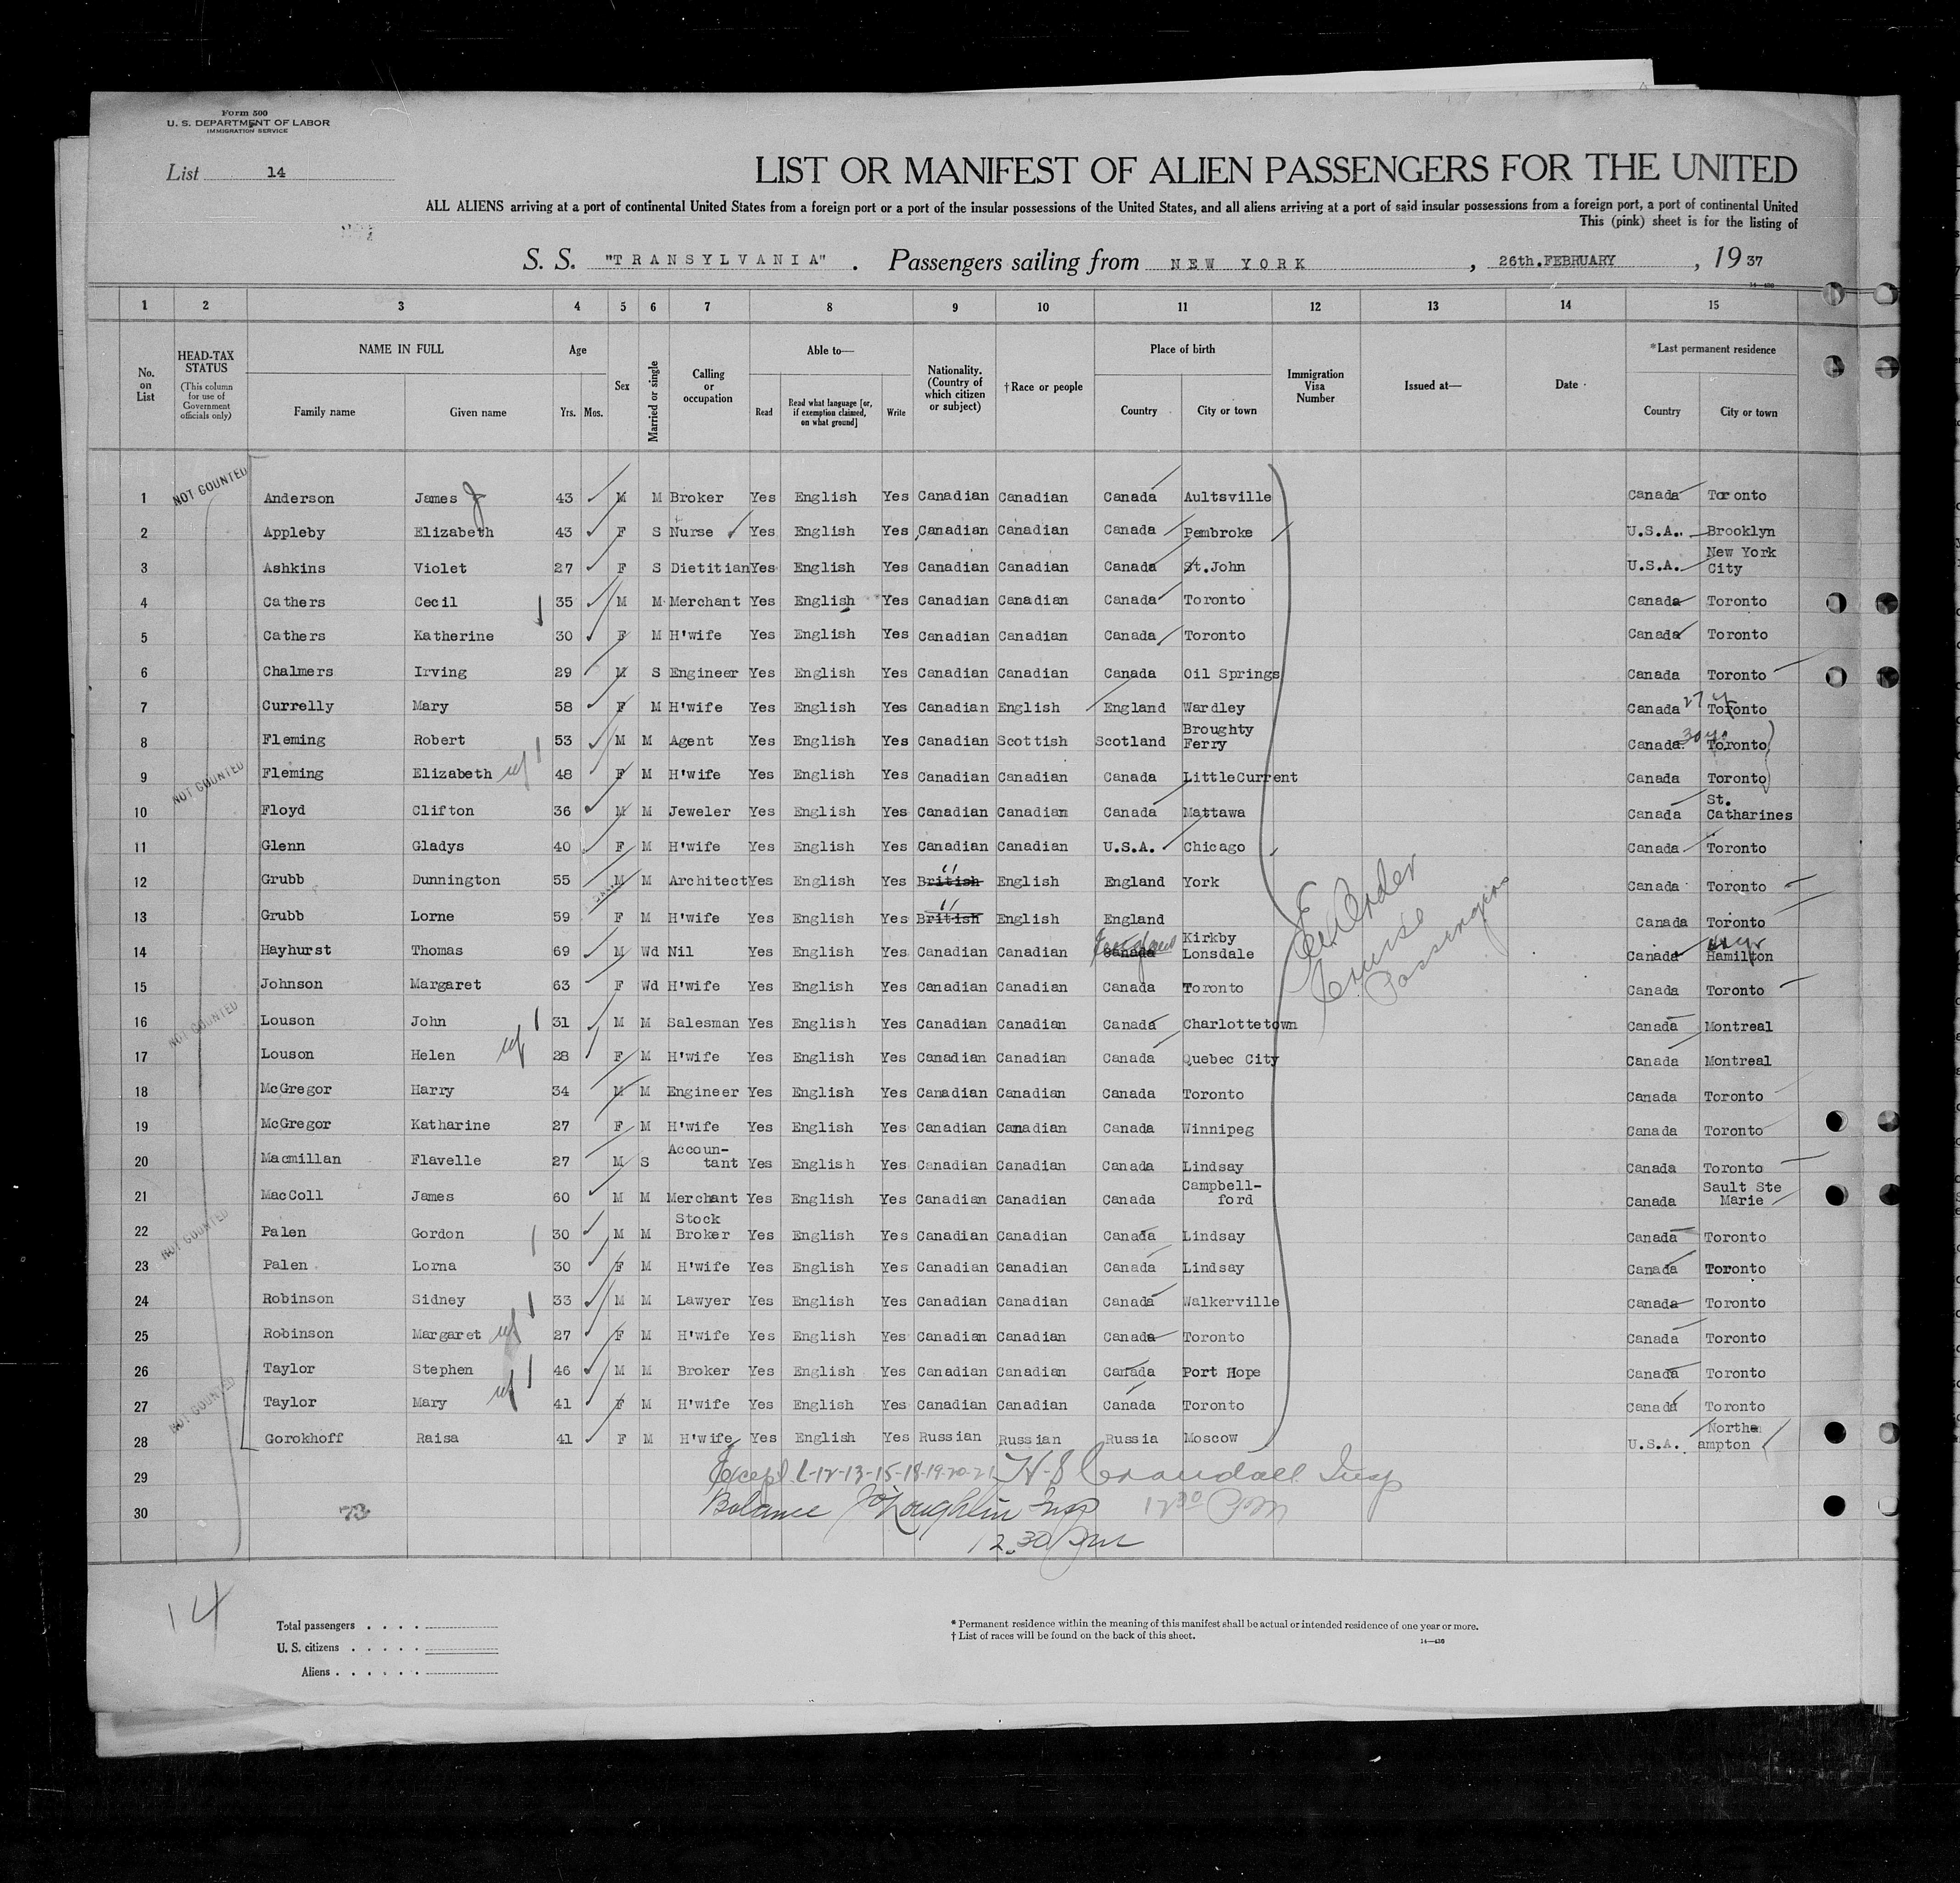 Form 500
U. S. DEPARTMENT OF LABOR
IMMIGRATION SERVICE
List 14
LIST OR MANIFEST OF ALIEN PASSENGERS FOR THE UNITED
ALL ALIENS arriving at a port of continental United States from a foreign port or a port of the insular possessions of the United States, and all aliens arriving at a port of said insular possessions from a foreign port, a port of continental United
This (pink) sheet is for the listing of
S. S. "TRANSYLVANIA" . Passengers sailing from NEW YORK , 26th.FEBRUARY , 19 37
14—430
1 2 3 4 5 6 7 8 9 10 11 12 13 14 15
No. on List
HEAD-TAX STATUS (This column for use of Government officials only)
NAME IN FULL
Family name Given name
Age
Yrs. Mos.
Sex
Married or single
Calling or occupation
Able to—
Read Read what language [or, if exemption claimed, on what ground] Write
Nationality. (Country of which citizen or subject)
†Race or people
Place of birth
Country City or town
Immigration Visa Number
Issued at—
Date
*Last permanent residence
Country City or town
NOT COUNTED
1 Anderson James J 43 M M Broker Yes English Yes Canadian Canadian Canada Aultsville Canada Toronto
2 Appleby Elizabeth 43 F S Nurse Yes English Yes Canadian Canadian Canada Pembroke U.S.A. Brooklyn
3 Ashkins Violet 27 F S Dietitian Yes English Yes Canadian Canadian Canada St.John U.S.A. New York City
4 Cathers Cecil 35 M M Merchant Yes English Yes Canadian Canadian Canada Toronto Canada Toronto
5 Cathers Katherine 30 F M H'wife Yes English Yes Canadian Canadian Canada Toronto Canada Toronto
6 Chalmers Irving 29 M S Engineer Yes English Yes Canadian Canadian Canada Oil Springs Canada Toronto
7 Currelly Mary 58 F M H'wife Yes English Yes Canadian English England Wardley Canada 27 y Toronto
8 Fleming Robert 53 M M Agent Yes English Yes Canadian Scottish Scotland Broughty Ferry Canada 30 yrs Toronto
NOT COUNTED
9 Fleming Elizabeth wf 48 F M H'wife Yes English Yes Canadian Canadian Canada LittleCurrent Canada Toronto
10 Floyd Clifton 36 M M Jeweler Yes English Yes Canadian Canadian Canada Mattawa Canada St. Catharines
11 Glenn Gladys 40 F M H'wife Yes English Yes Canadian Canadian U.S.A. Chicago Canada Toronto
12 Grubb Dunnington 55 M M Architect Yes English Yes British " English England York Canada Toronto
13 Grubb Lorne 59 F M H'wife Yes English Yes British " English England Canada Toronto
14 Hayhurst Thomas 69 M Wd Nil Yes English Yes Canadian Canadian Canada Kirkby Lonsdale Canada Hamilton
15 Johnson Margaret 63 F Wd H'wife Yes English Yes Canadian Canadian Canada Toronto Canada Toronto
NOT COUNTED
16 Louson John 31 M M Salesman Yes English Yes Canadian Canadian Canada Charlottetown Canada Montreal
17 Louson Helen wf 28 F M H'wife Yes English Yes Canadian Canadian Canada Quebec City Canada Montreal
18 McGregor Harry 34 M M Engineer Yes English Yes Canadian Canadian Canada Toronto Canada Toronto
19 McGregor Katharine 27 F M H'wife Yes English Yes Canadian Canadian Canada Winnipeg Canada Toronto
20 Macmillan Flavelle 27 M S Accoun-tant Yes English Yes Canadian Canadian Canada Lindsay Canada Toronto
21 MacColl James 60 M M Merchant Yes English Yes Canadian Canadian Canada Campbell-ford Canada Sault Ste Marie
NOT COUNTED
22 Palen Gordon 30 M M Stock Broker Yes English Yes Canadian Canadian Canada Lindsay Canada Toronto
23 Palen Lorna 30 F M H'wife Yes English Yes Canadian Canadian Canada Lindsay Canada Toronto
24 Robinson Sidney 33 M M Lawyer Yes English Yes Canadian Canadian Canada Walkerville Canada Toronto
25 Robinson Margaret wf 27 F M H'wife Yes English Yes Canadian Canadian Canada Toronto Canada Toronto
26 Taylor Stephen 46 M M Broker Yes English Yes Canadian Canadian Canada Port Hope Canada Toronto
NOT COUNTED
27 Taylor Mary wf 41 F M H'wife Yes English Yes Canadian Canadian Canada Toronto Canada Toronto
28 Gorokhoff Raisa 41 F M H'wife Yes English Yes Russian Russian Russia Moscow U.S.A. Northampton
Ex Order
Cruise
Passengers
29 Except L-12-13-15-18-19-20-21 H. S Crandall Insp
30 73 Balance Insp 12 30 PM
12.30 PM
14
Total passengers . . . .
U. S. citizens . . . . .
Aliens . . . . . .
* Permanent residence within the meaning of this manifest shall be actual or intended residence of one year or more.
† List of races will be found on the back of this sheet.
14—430